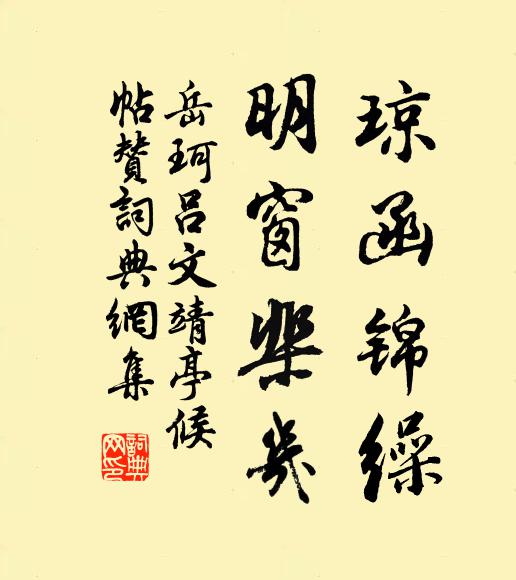 琼函锦缲
明窗棐几
岳珂吕文靖亭候
帖赞词典网集
词典网印